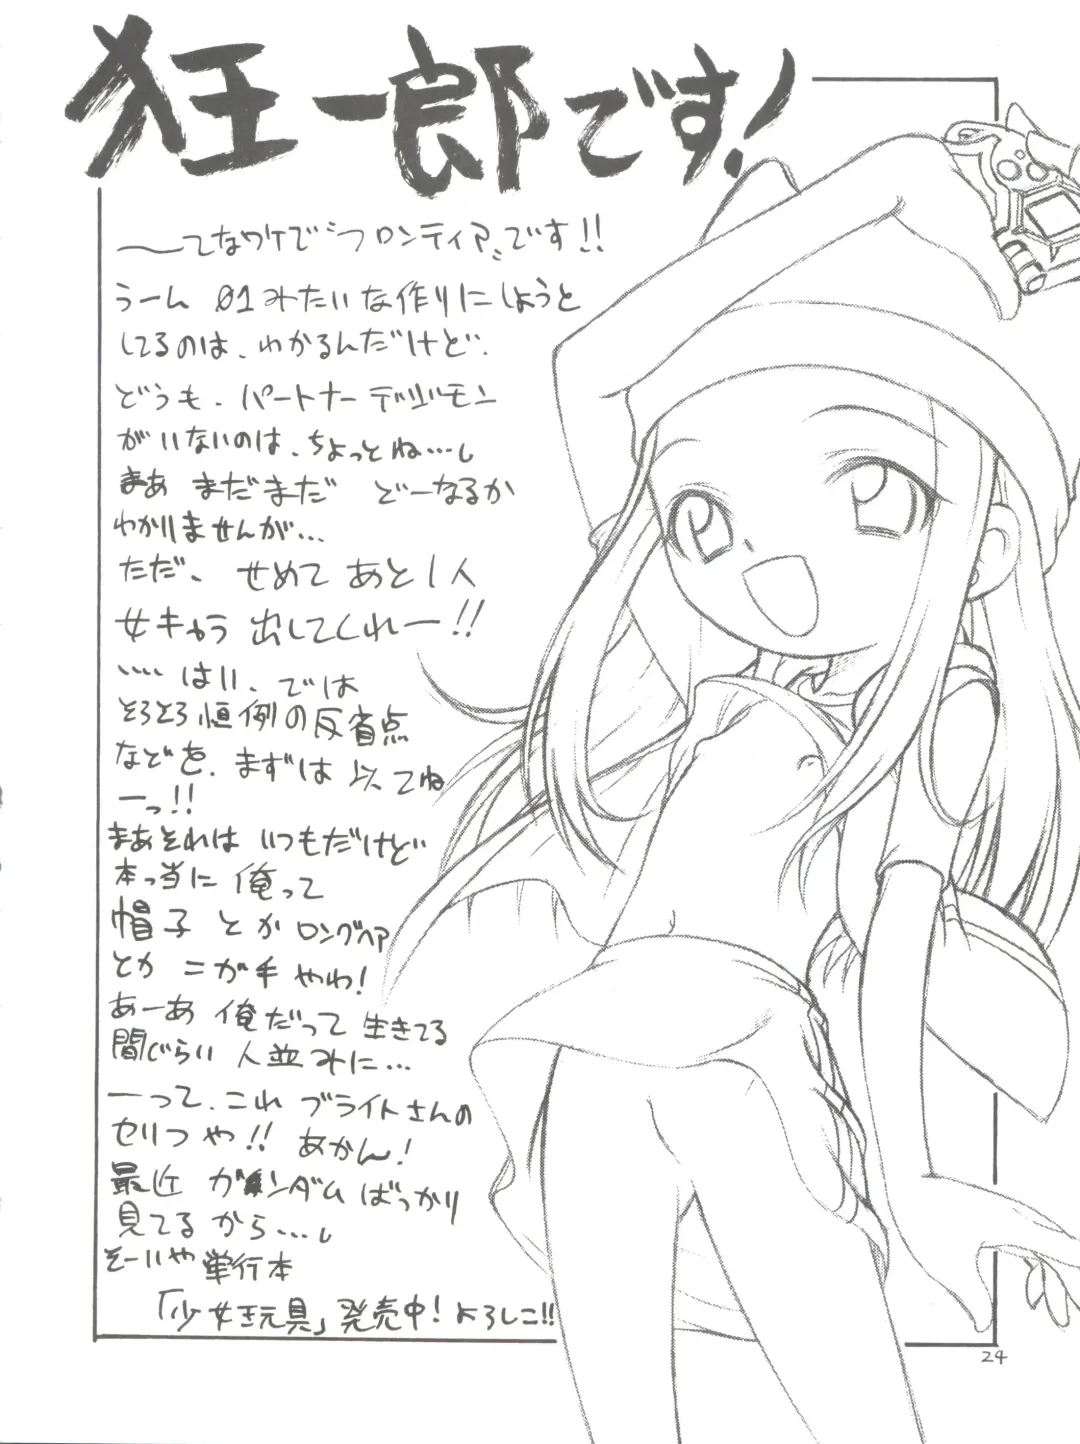 狂一郎です!
〜てなワケで"フロンティア"です!!
うーん 01みたいな作りにしようと
してるのは、わかるんだけど、
どうも、パートナーデジモン
がいないのは、ちょっとね…。
まあ まだまだ どーなるか
わかりませんが…
ただ、せめて あと1人
女キャラ 出してくれー!!
…はい、では
そろそろ恒例の反省点
などを、まずは 以てね
ーっ!!
まあそれは いつもだけど
本っ当に 俺って
帽子 とか ロングヘア
とか ニガ手 やわ!
あーあ 俺だって 生きてる
間じらい 人並みに…
ーって、これ ブライトさんの
セリフや!! あかん!
最近 ガンダム ばっかり
見てるから…。
そーいや 単行本
「少女玩具」発売中! よろしこ!!
24